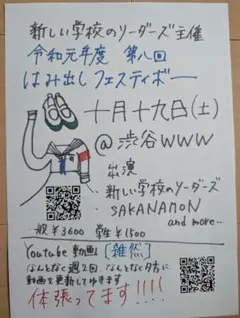 新しい学校のリーダーズ主催
令和元年度 第八回
はみ出しフェスティボー
十月十九日(土)
@渋谷WWW
出演
新しい学校のリーダーズ
SAKANAMON
and more..
一般¥3600 学生¥1500
Youtube動画 [雑然]
なんとなく週2回 なんとなく夕方に
動画を更新してゆきます
体張ってます!!!!